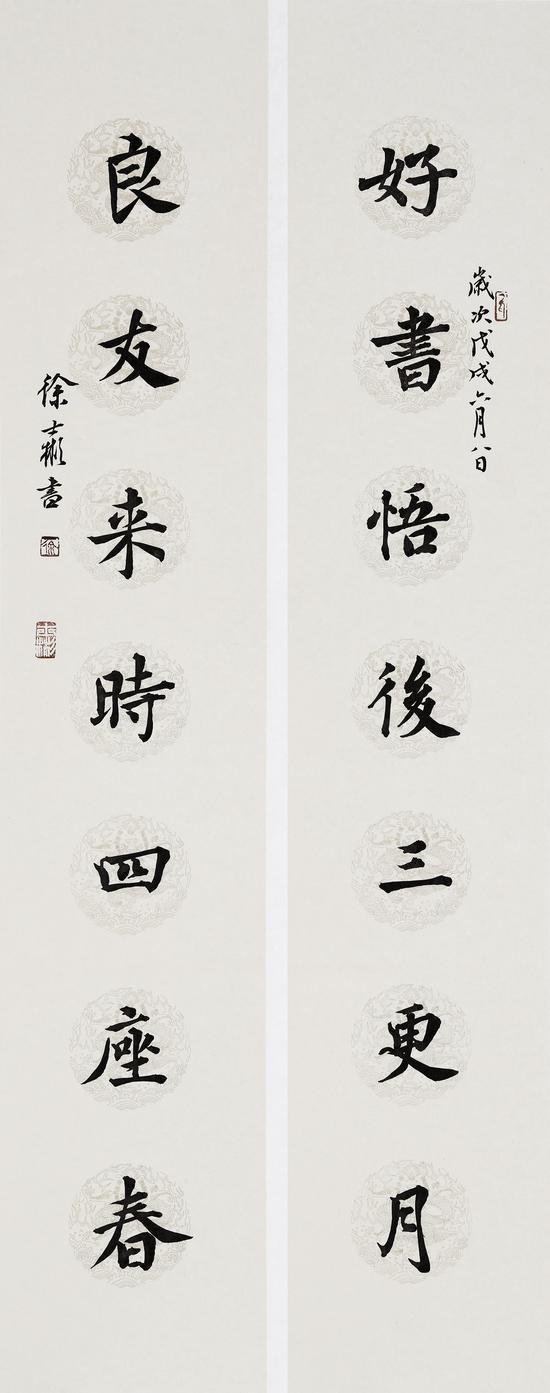 歲次戊戌六月八日
好書悟後三更月
良友来時四座春
徐士書